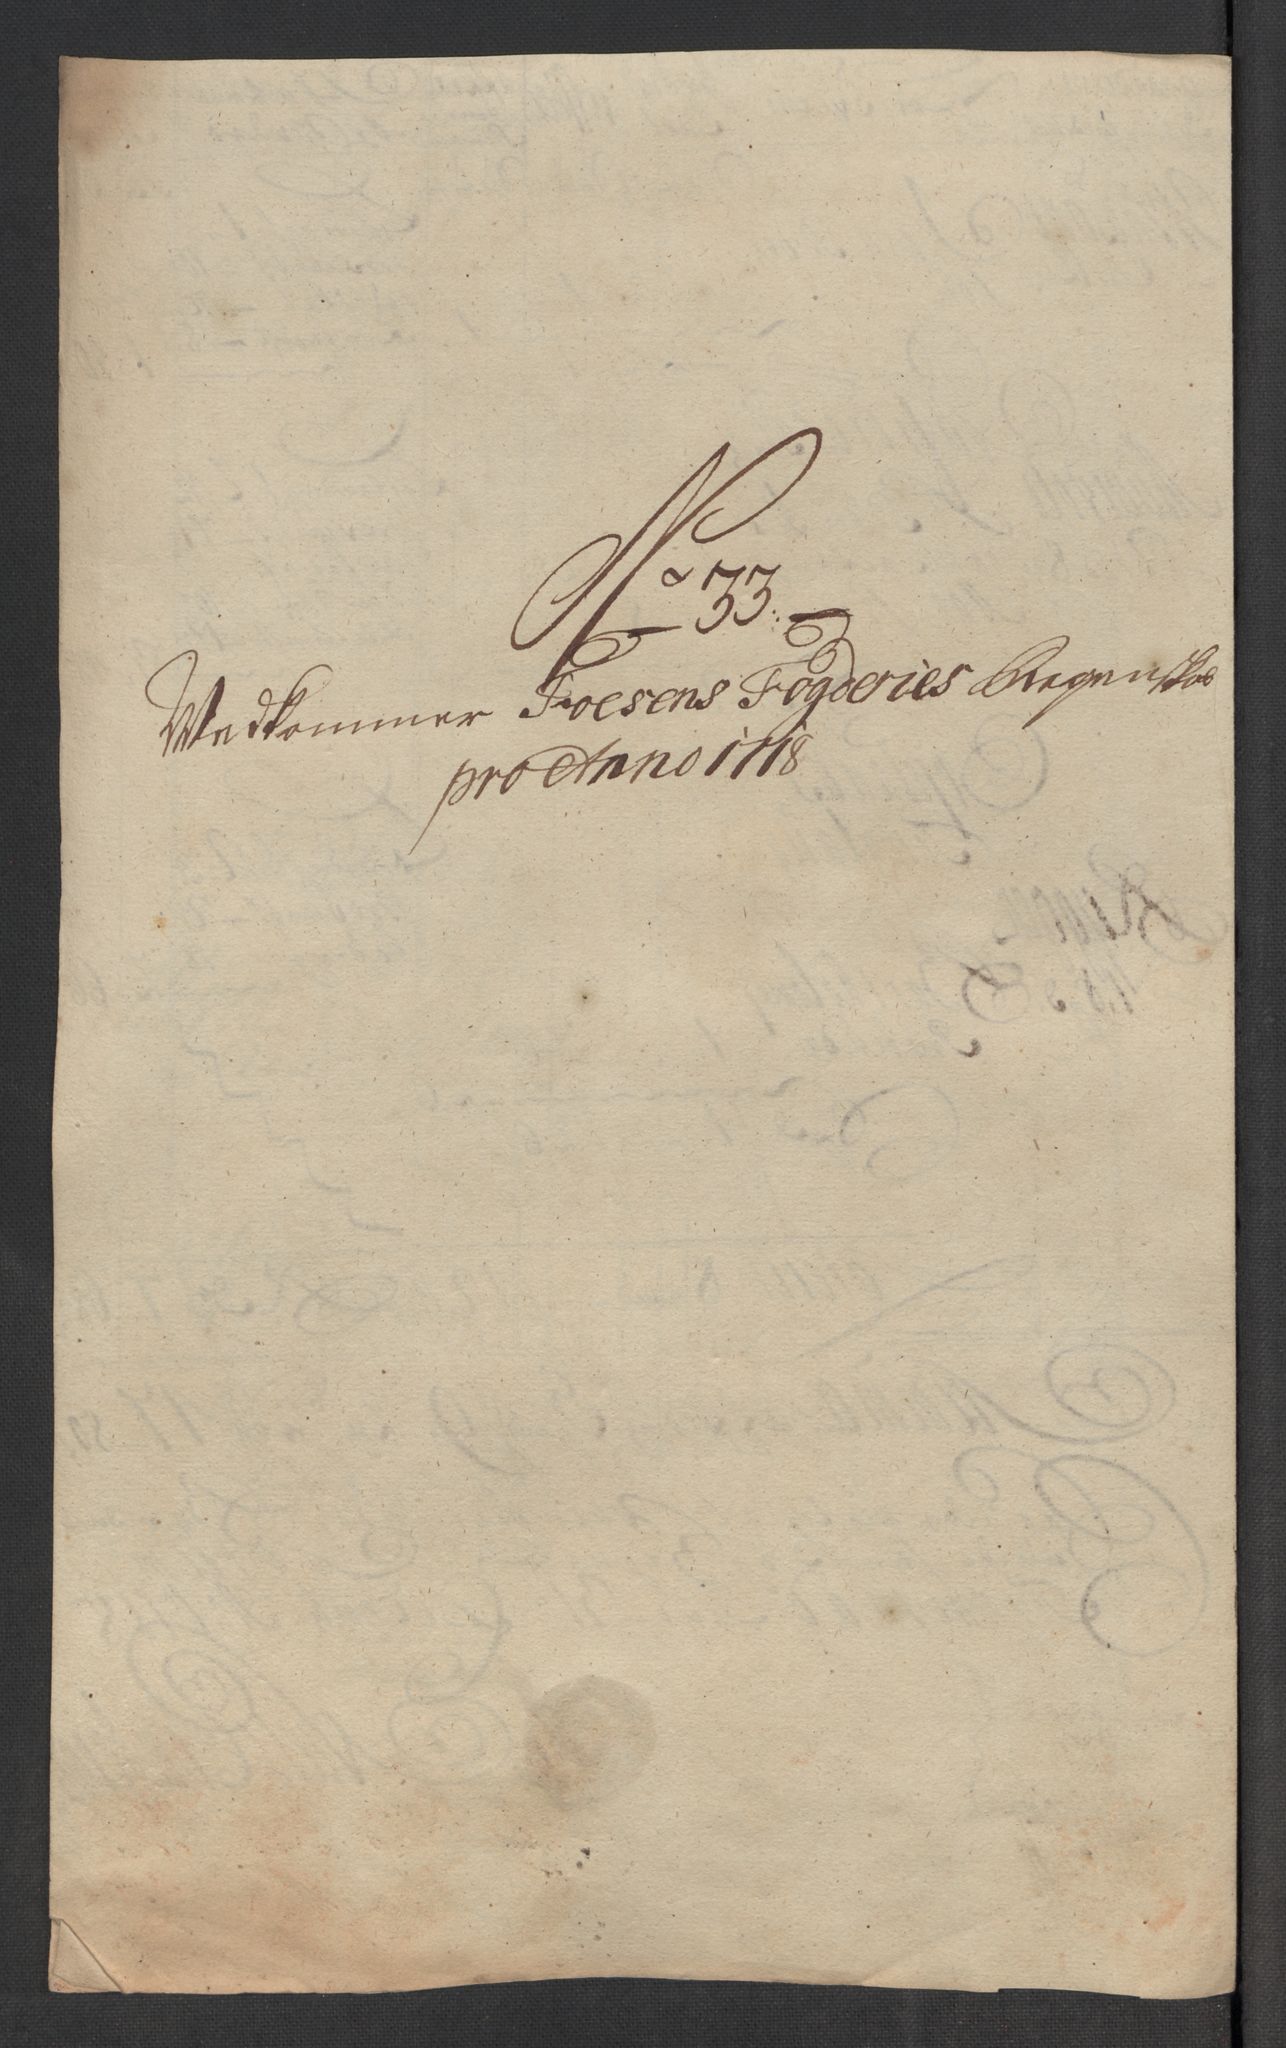 No 33.
Vedkommer Foesens Fogderies Regenskab
pro Anno 1718